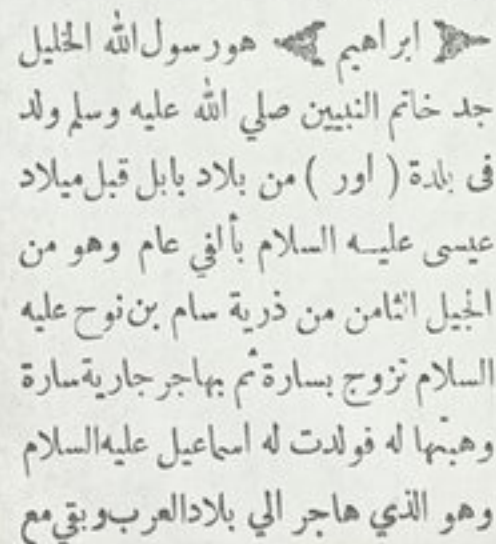 ﴿ ابراهيم ﴾ هو رسول الله الخليل
جد خاتم النبيين صلي الله عليه وسلم ولد
فى بلدة ( اور ) من بلاد بابل قبل ميلاد
عيسى عليه السلام بألفي عام وهو من
الجيل الثامن من ذرية سام بن نوح عليه
السلام تزوج بسارة ثم بهاجر جارية سارة
وهبتها له فولدت له اسماعيل عليه السلام
وهو الذي هاجر الي بلاد العرب وبقي مع